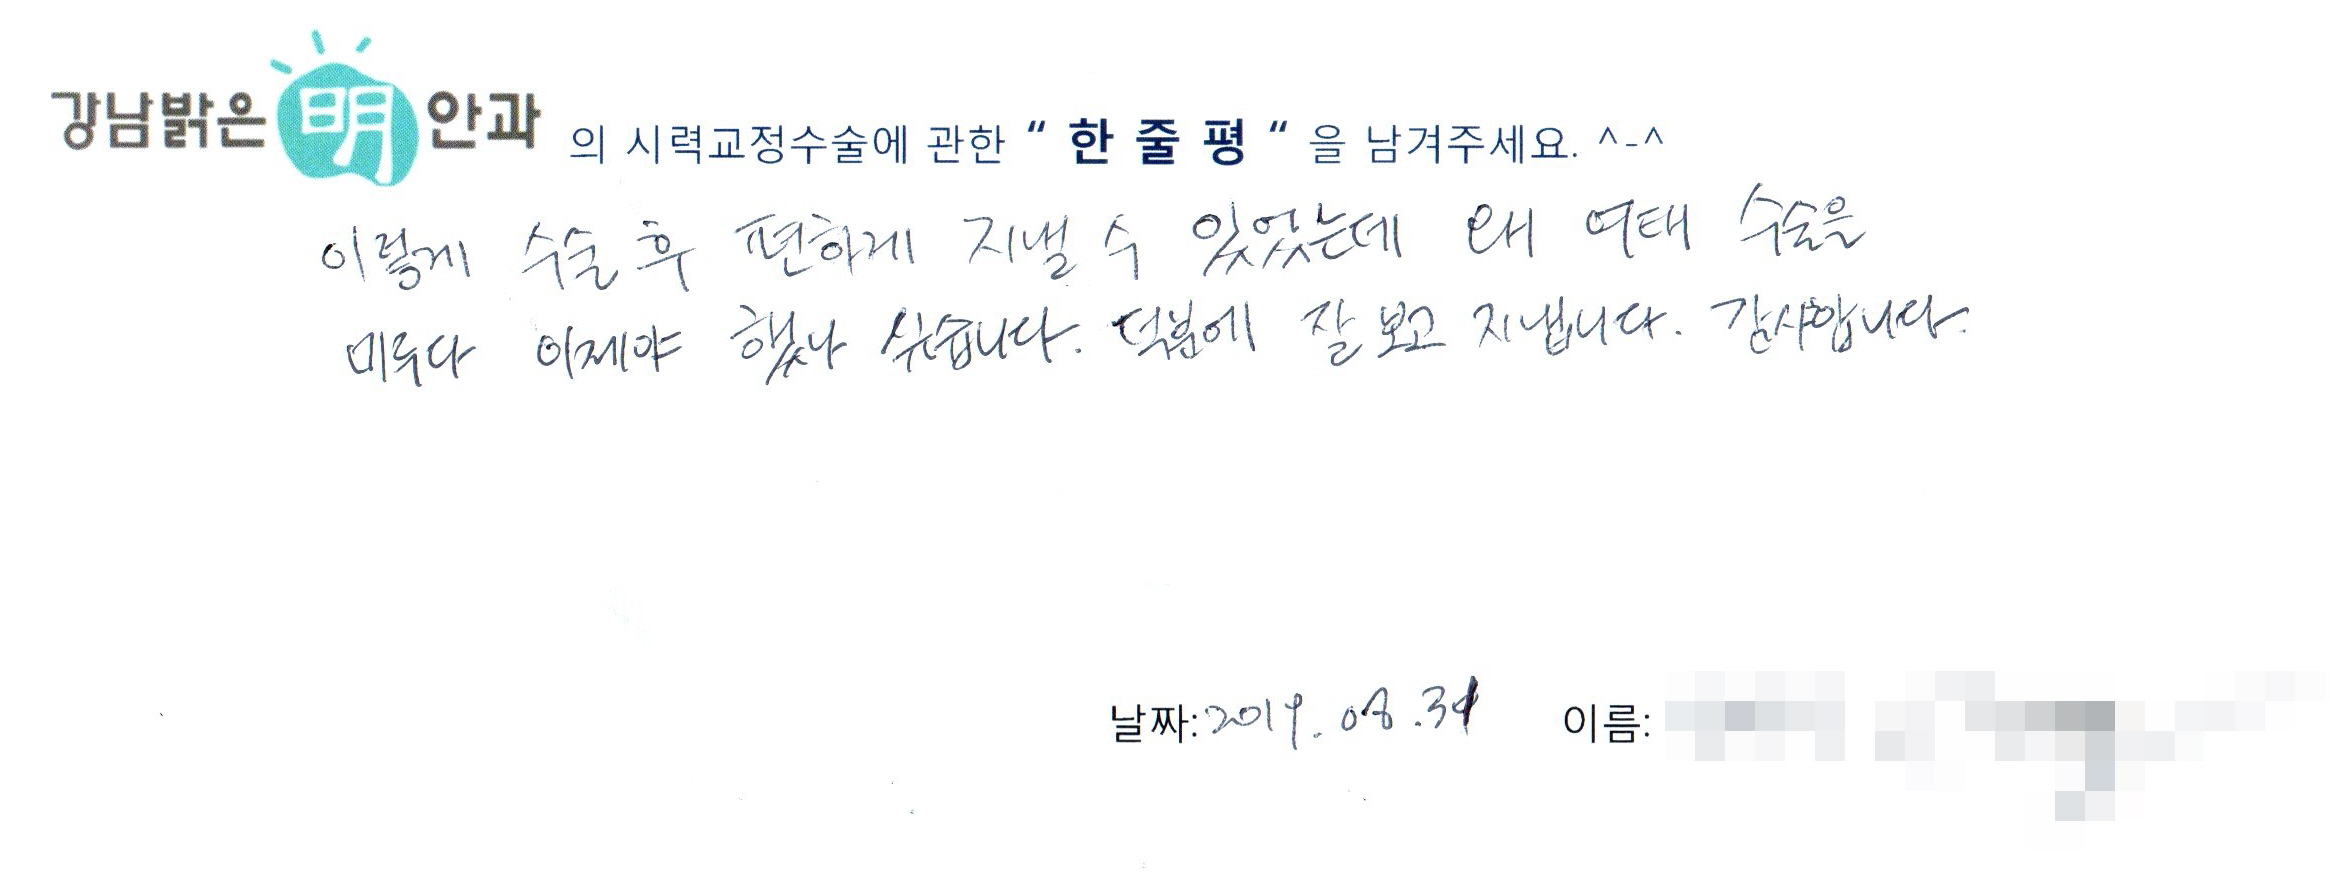 강남밝은 明 안과 의 시력교정수술에 관한 “ 한 줄 평 “ 을 남겨주세요. ^-^
이렇게 수술 후 편하게 지낼 수 있었는데 왜 여태 수술을
미루다 이제야 했나 싶습니다. 덕분에 잘 보고 지냅니다. 감사합니다.
날짜: 2019. 08. 31 이름: